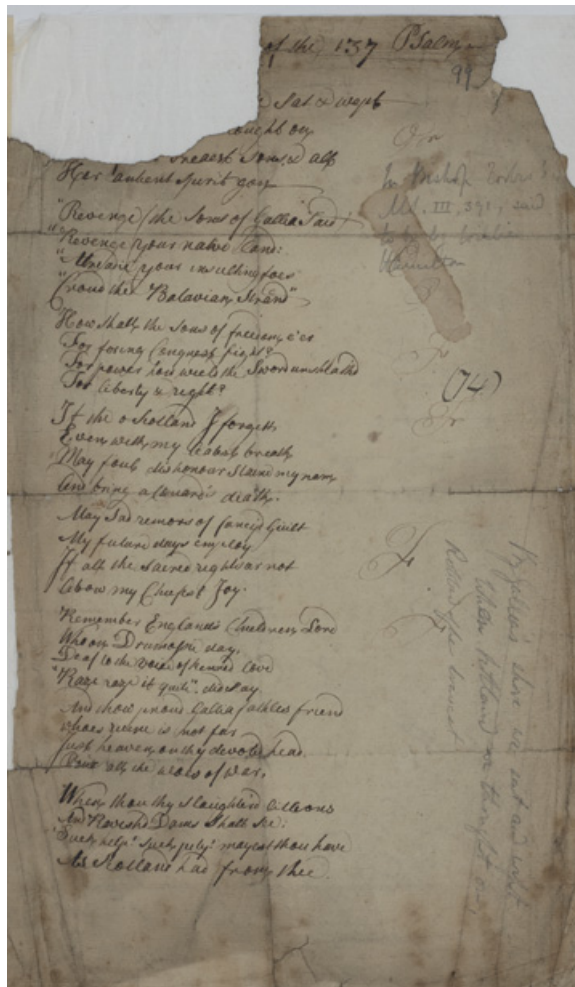 of the, 137 Psalm
99
Sat & wept
ought on
Sons, & all
Her antient Spirit gon
"Revenge (the Sons of Gallia Said)
"Revenge your native Land:
your insulting foes
Croud the Batavian Strand"
How shall the Sons of freedom e'er
For foring Congress fight?
For power how weild the Sword unsheath'd
For liberty & right?
If the o Scotland I forgett
Even with my latest breath
May foul dishonour Staine my name
And bring a Cowards death.
May Sad remors of fancy'd Guilt
My future days employ
If all the Sacred rights ar not
above my Chepest Joy.
Remember England's Children Lord
Whoo on Drumossie day,
Deaf to the voice of kenred love
"Raze raze it quite". did say.
And thow proud Gallia faithles friend
whoes ruine is not far
Just heaven on thy devoted head
Pour all the woes of war.
When thou thy Slaughterd
And Ravishd Dams Shall See:
Such help! Such pety! mayest thou have
As Scotland had from thee.
In Bishop
Ms. III. 391, said
to be by William
Hamilton
(74)
By Gallia's shore we sat and wept
When Scotland we thought on,